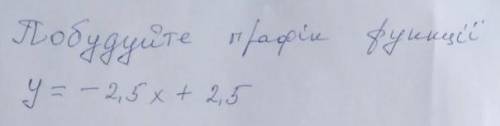 Побудуйте графік функції
y = - 2,5 x + 2,5